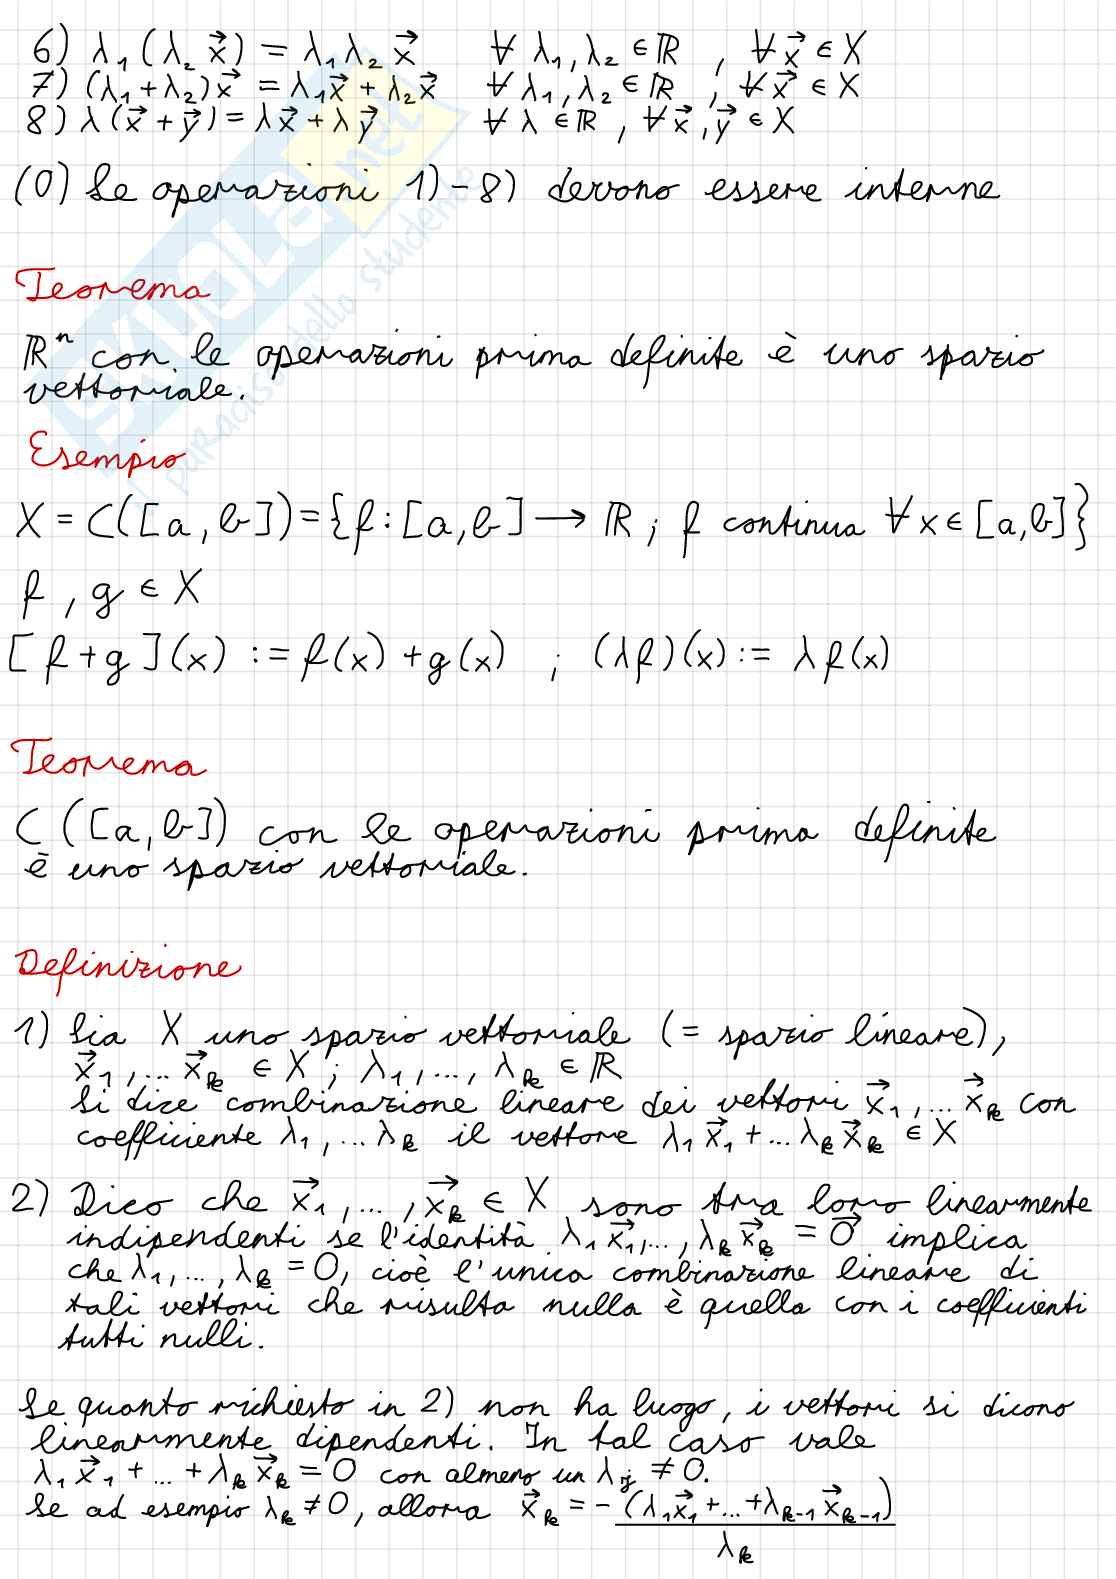 6) λ₁(λ₂ x⃗) = λ₁λ₂ x⃗ ∀ λ₁, λ₂ ∈ ℝ , ∀ x⃗ ∈ X
7) (λ₁+λ₂)x⃗ = λ₁x⃗ + λ₂x⃗ ∀ λ₁, λ₂ ∈ ℝ , ∀ x⃗ ∈ X
8) λ(x⃗ + y⃗) = λx⃗ + λy⃗ ∀ λ ∈ ℝ , ∀ x⃗, y⃗ ∈ X
(0) Le operazioni 1) - 8) devono essere interne
Teorema
ℝⁿ con le operazioni prima definite è uno spazio
vettoriale.
Esempio
X = C([a,b]) = {f : [a,b] → ℝ ; f continua ∀ x ∈ [a,b]}
f , g ∈ X
[f+g](x) := f(x) + g(x) ; (λf)(x) := λf(x)
Teorema
C([a,b]) con le operazioni prima definite
è uno spazio vettoriale.
Definizione
1) Sia X uno spazio vettoriale (= spazio lineare),
x⃗₁, ... x⃗ₖ ∈ X ; λ₁, ..., λₖ ∈ ℝ
Si dice combinazione lineare dei vettori x⃗₁, ... x⃗ₖ con
coefficiente λ₁, ... λₖ il vettore λ₁x⃗₁ + ... λₖx⃗ₖ ∈ X
2) Dico che x⃗₁, ..., x⃗ₖ ∈ X sono tra loro linearmente
indipendenti se l'identità λ₁x⃗₁, ..., λₖx⃗ₖ = 0⃗ implica
che λ₁, ..., λₖ = 0, cioè l'unica combinazione lineare di
tali vettori che risulta nulla è quella con i coefficienti
tutti nulli.
Se quanto richiesto in 2) non ha luogo, i vettori si dicono
linearmente dipendenti. In tal caso vale
λ₁x⃗₁ + ... + λₖx⃗ₖ = 0 con almeno un λⱼ ≠ 0.
Se ad esempio λₖ ≠ 0, allora x⃗ₖ = - (λ₁x⃗₁ + ... + λₖ₋₁x⃗ₖ₋₁)
λₖ
SKUOLA.net
il paradiso dello studente